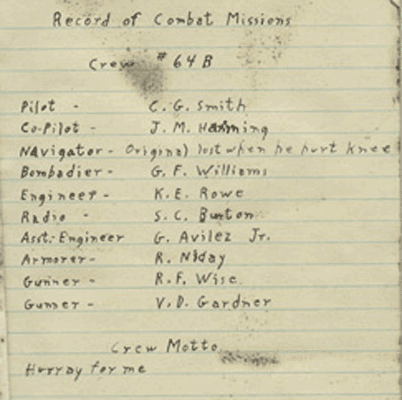 Record of Combat Missions
Crew #64B
Pilot - C. G. Smith
Co-Pilot - J. M. Hamming
NAvigator - Original lost when he hurt knee
Bombadier - G. F. Williams
Engineer - K. E. Rowe
Radio - S. C. Burton
Asst. Engineer G. Avilez Jr.
Armorer - R. Niday
Gunner - R. F. Wise
Gunner - V. D. Gardner
Crew Motto
Hurray for me